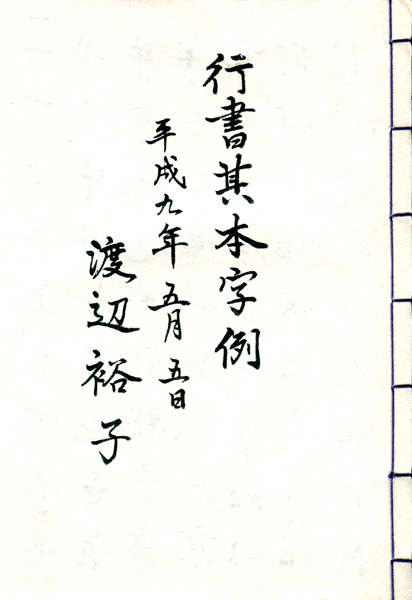 行書其本字例
平成九年五月五日
渡辺裕子